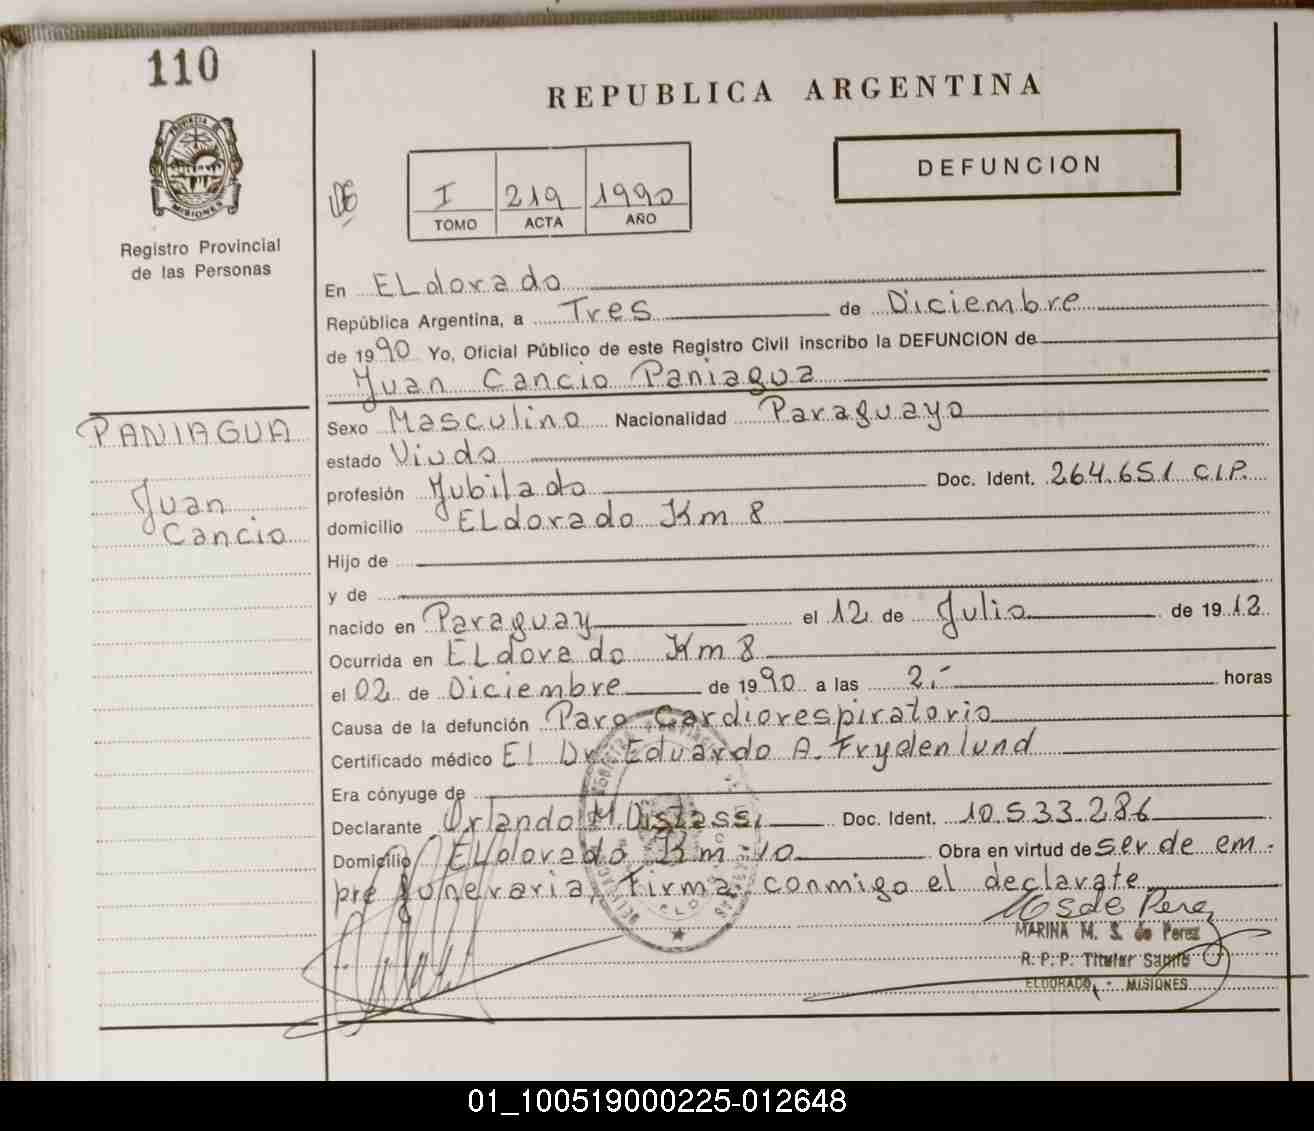 110
REPUBLICA ARGENTINA
PROVINCIA DE
MISIONES
DEFUNCION
I 219 1990
TOMO ACTA AÑO
Registro Provincial
de las Personas
En ELdorado
República Argentina, a Tres de Diciembre
de 1990 Yo, Oficial Público de este Registro Civil inscribo la DEFUNCION de
Juan Cancio Paniagua
PANIAGUA
Juan
Cancio
Sexo Masculino Nacionalidad Paraguayo
estado Viudo
profesión Jubilado Doc. Ident. 264.651 C.I.P.
domicilio ELdorado Km 8
Hijo de
y de
nacido en Paraguay el 12 de Julio de 1912
Ocurrida en ELdorado Km 8
el 02 de Diciembre de 1990 a las 2.- horas
Causa de la defunción Paro Cardiorespiratorio
Certificado médico El Dr. Eduardo A. Frydenlund
Era cónyuge de
Declarante Orlando M. Distassi Doc. Ident. 10.533.286
Domicilio ELdorado Km 10 Obra en virtud de ser de em-
pre funeraria, Firma conmigo el declarate
MARINA M. S. de Perez
R. P. P. Titular
ELDORADO - MISIONES
01_100519000225-012648